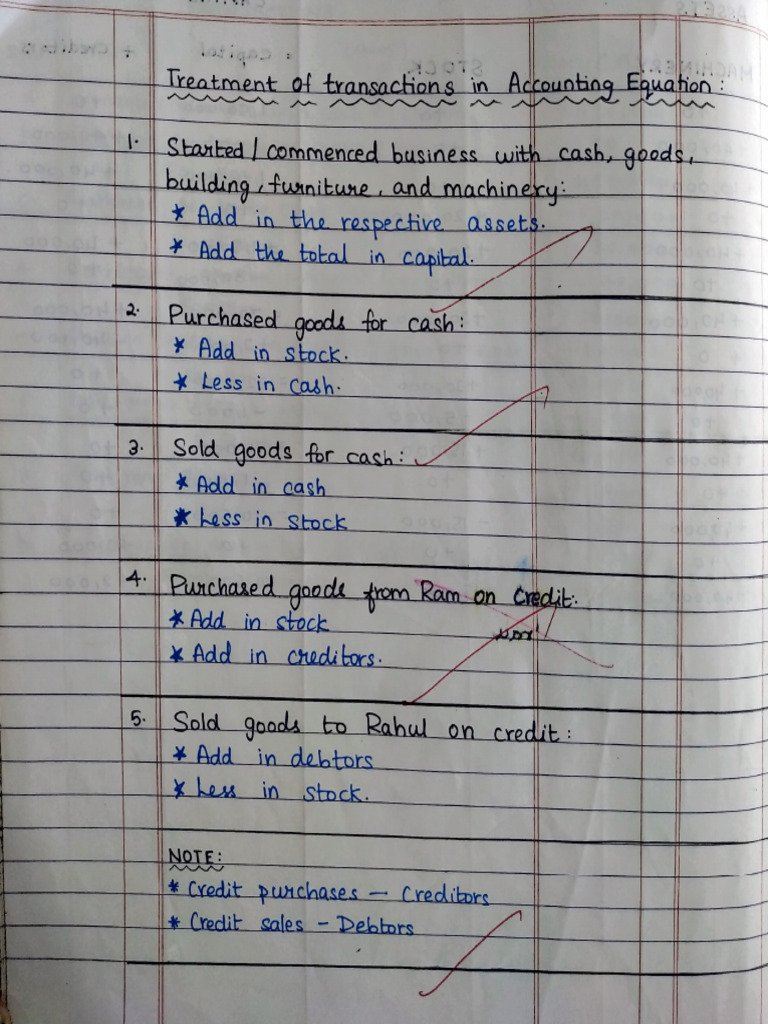 Treatment of transactions in Accounting Equation:
1. Started / commenced business with cash, goods,
building, furniture, and machinery:
* Add in the respective assets.
* Add the total in capital.
2. Purchased goods for cash:
* Add in stock.
* Less in cash.
3. Sold goods for cash:
* Add in cash
* Less in stock
4. Purchased goods from Ram on credit:
* Add in stock
* Add in creditors.
5. Sold goods to Rahul on credit:
* Add in debtors
* Less in stock.
NOTE:
* Credit purchases - Creditors
* Credit sales - Debtors